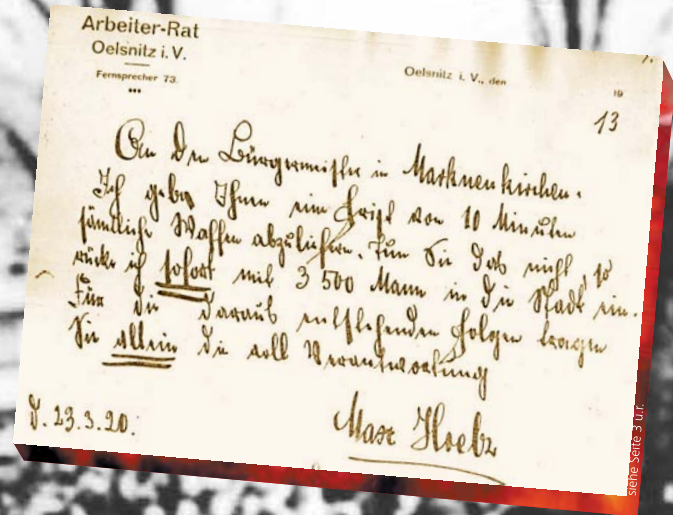 Arbeiter-Rat
Oelsnitz i. V.
Fernsprecher 73.
Oelsnitz i. V., den
19
13
An den Bürgermeister in Marknenkirchen.
Ich gebe Ihnen eine Frist von 10 Minuten
sämtliche Waffen abzuliefern. Tun Sie das nicht, so
rücke ich sofort mit 3 500 Mann in die Stadt ein.
Für die daraus entstehenden Folgen tragen
Sie allein die voll Verantwortung
23.3.20.
Max Hoelz
siehe Seite 3 u.r.